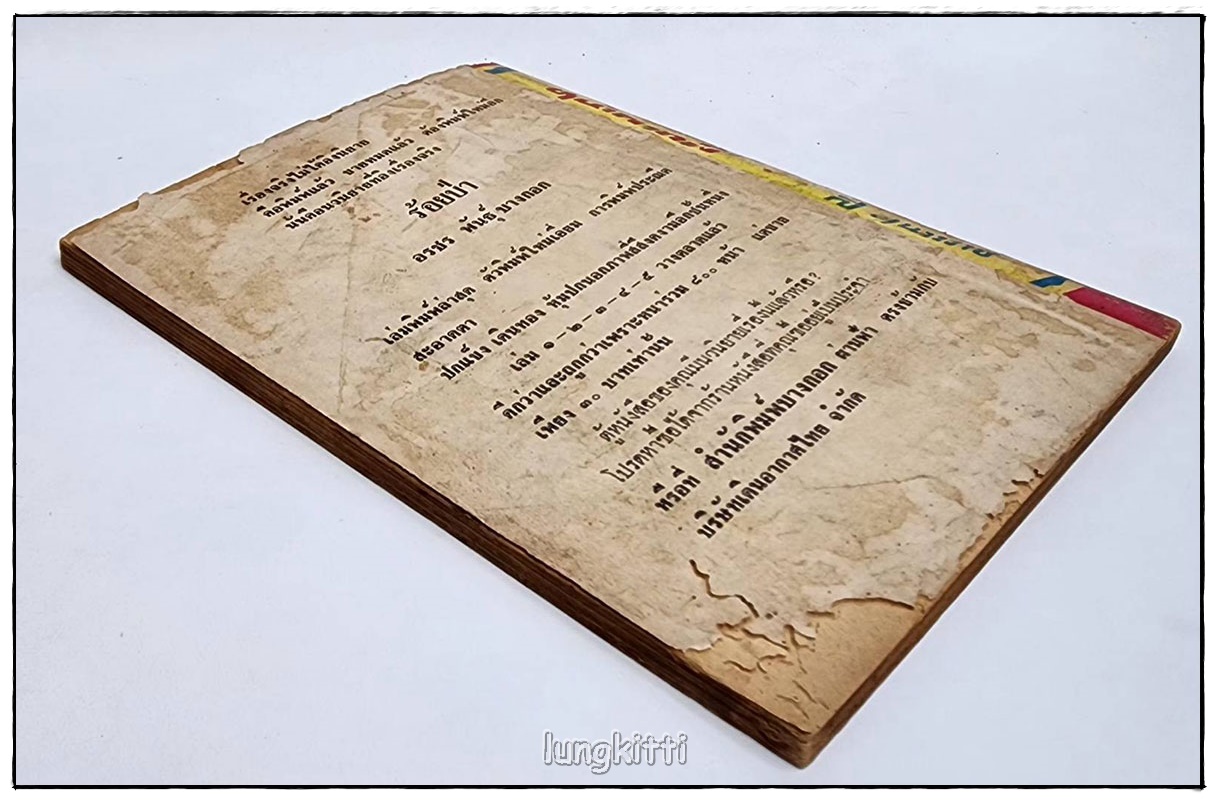 เรื่องจริงไม่ได้อิงนิยาย
คือพิมพ์แล้ว ขายหมดแล้ว ต้องพิมพ์ใหม่อีก
บันดิคอนวินตาย
ร้อยป่า
อรชร พันธุ์บางกอก
เล่มพิมพ์ล่าสุด ตัวพิมพ์ใหม่เอี่ยม การพิมพ์ประณีต
สะอาดตา
ปกแข็ง เดินทอง หุ้มปกนอกภาพสี่สีงดงามอีกชั้นหนึ่ง
เล่ม ๑-๒-๓-๔-๕ วางตลาดแล้ว
ดีกว่าและถูกกว่าเพราะหนารวม ๘๐๐ หน้า แต่ขาย
เพียง ๓๐ บาทเท่านั้น
ตู้หนังสือของคุณมีนวนิยายเรื่องนี้แล้วหรือ?
โปรดหาซื้อได้จากร้านหนังสือที่คุณซื้ออยู่เป็นประจำ
หรือที่ สำนักพิมพ์บางกอก ผ่านฟ้า ตรงข้ามกับ
บริษัทเดินอากาศไทย จำกัด
lungkitti